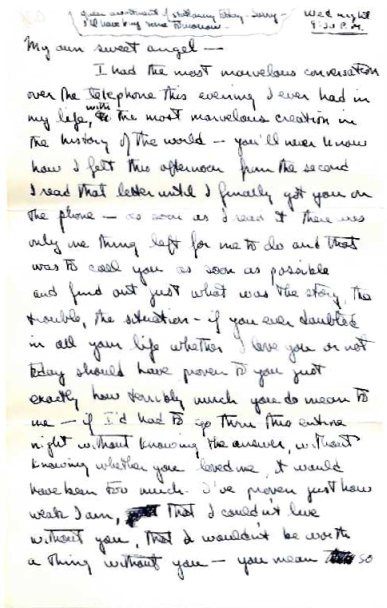 assortment of stationery today - sorry -
I'll have my some tomorrow -
Wed. night
9:30 P.M.
My own sweet angel —
I had the most marvelous conversation
over the telephone this evening I ever had in
my life, with the most marvelous creation in
the history of the world — you'll never know
how I felt this afternoon from the second
I read that letter until I finally got you on
the phone — as soon as I read it there was
only one thing left for me to do and that
was to call you as soon as possible
and find out just what was the story, the
trouble, the situation - if you ever doubted
in all your life whether I love you or not
today should have proven to you just
exactly how terribly much you do mean to
me — if I'd had to go thru this entire
night without knowing the answer, without
knowing whether you loved me, it would
have been too much - I've proven just how
weak I am, that I couldn't live
without you, that I wouldn't be worth
a thing without you — you mean so